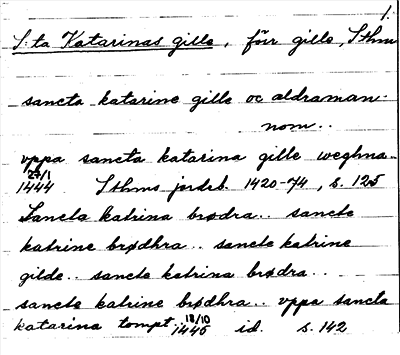 1.
S:ta Katarinas gille, förr gille, Sthm
sancta katarine gille oc aldraman-
nom..
vppa sancta katarina gille weghna..
27/1
1444 Sthms jordeb. 1420-74, s. 125
Sancta katrina brødra.. sancte
katrine brødhra.. sancte katrine
gilde.. sancte katrina brødra..
sancte katrine brødhra.. vppa sancta
katarina tompt 18/10 1446 id. s. 142